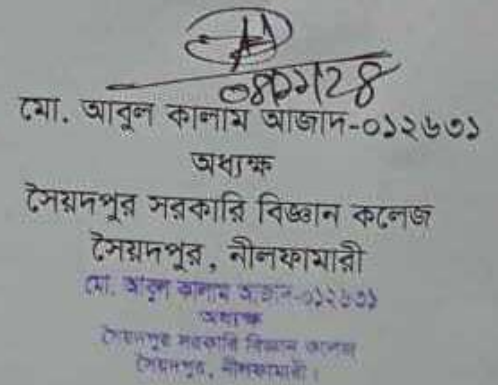 ০৪/১১/২৪
মো. আবুল কালাম আজাদ-০১২৬৩১
অধ্যক্ষ
সৈয়দপুর সরকারি বিজ্ঞান কলেজ
সৈয়দপুর, নীলফামারী
মো. আবুল কালাম আজাদ-০১২৬৩১
অধ্যক্ষ
সৈয়দপুর সরকারি বিজ্ঞান কলেজ
সৈয়দপুর, নীলফামারী।